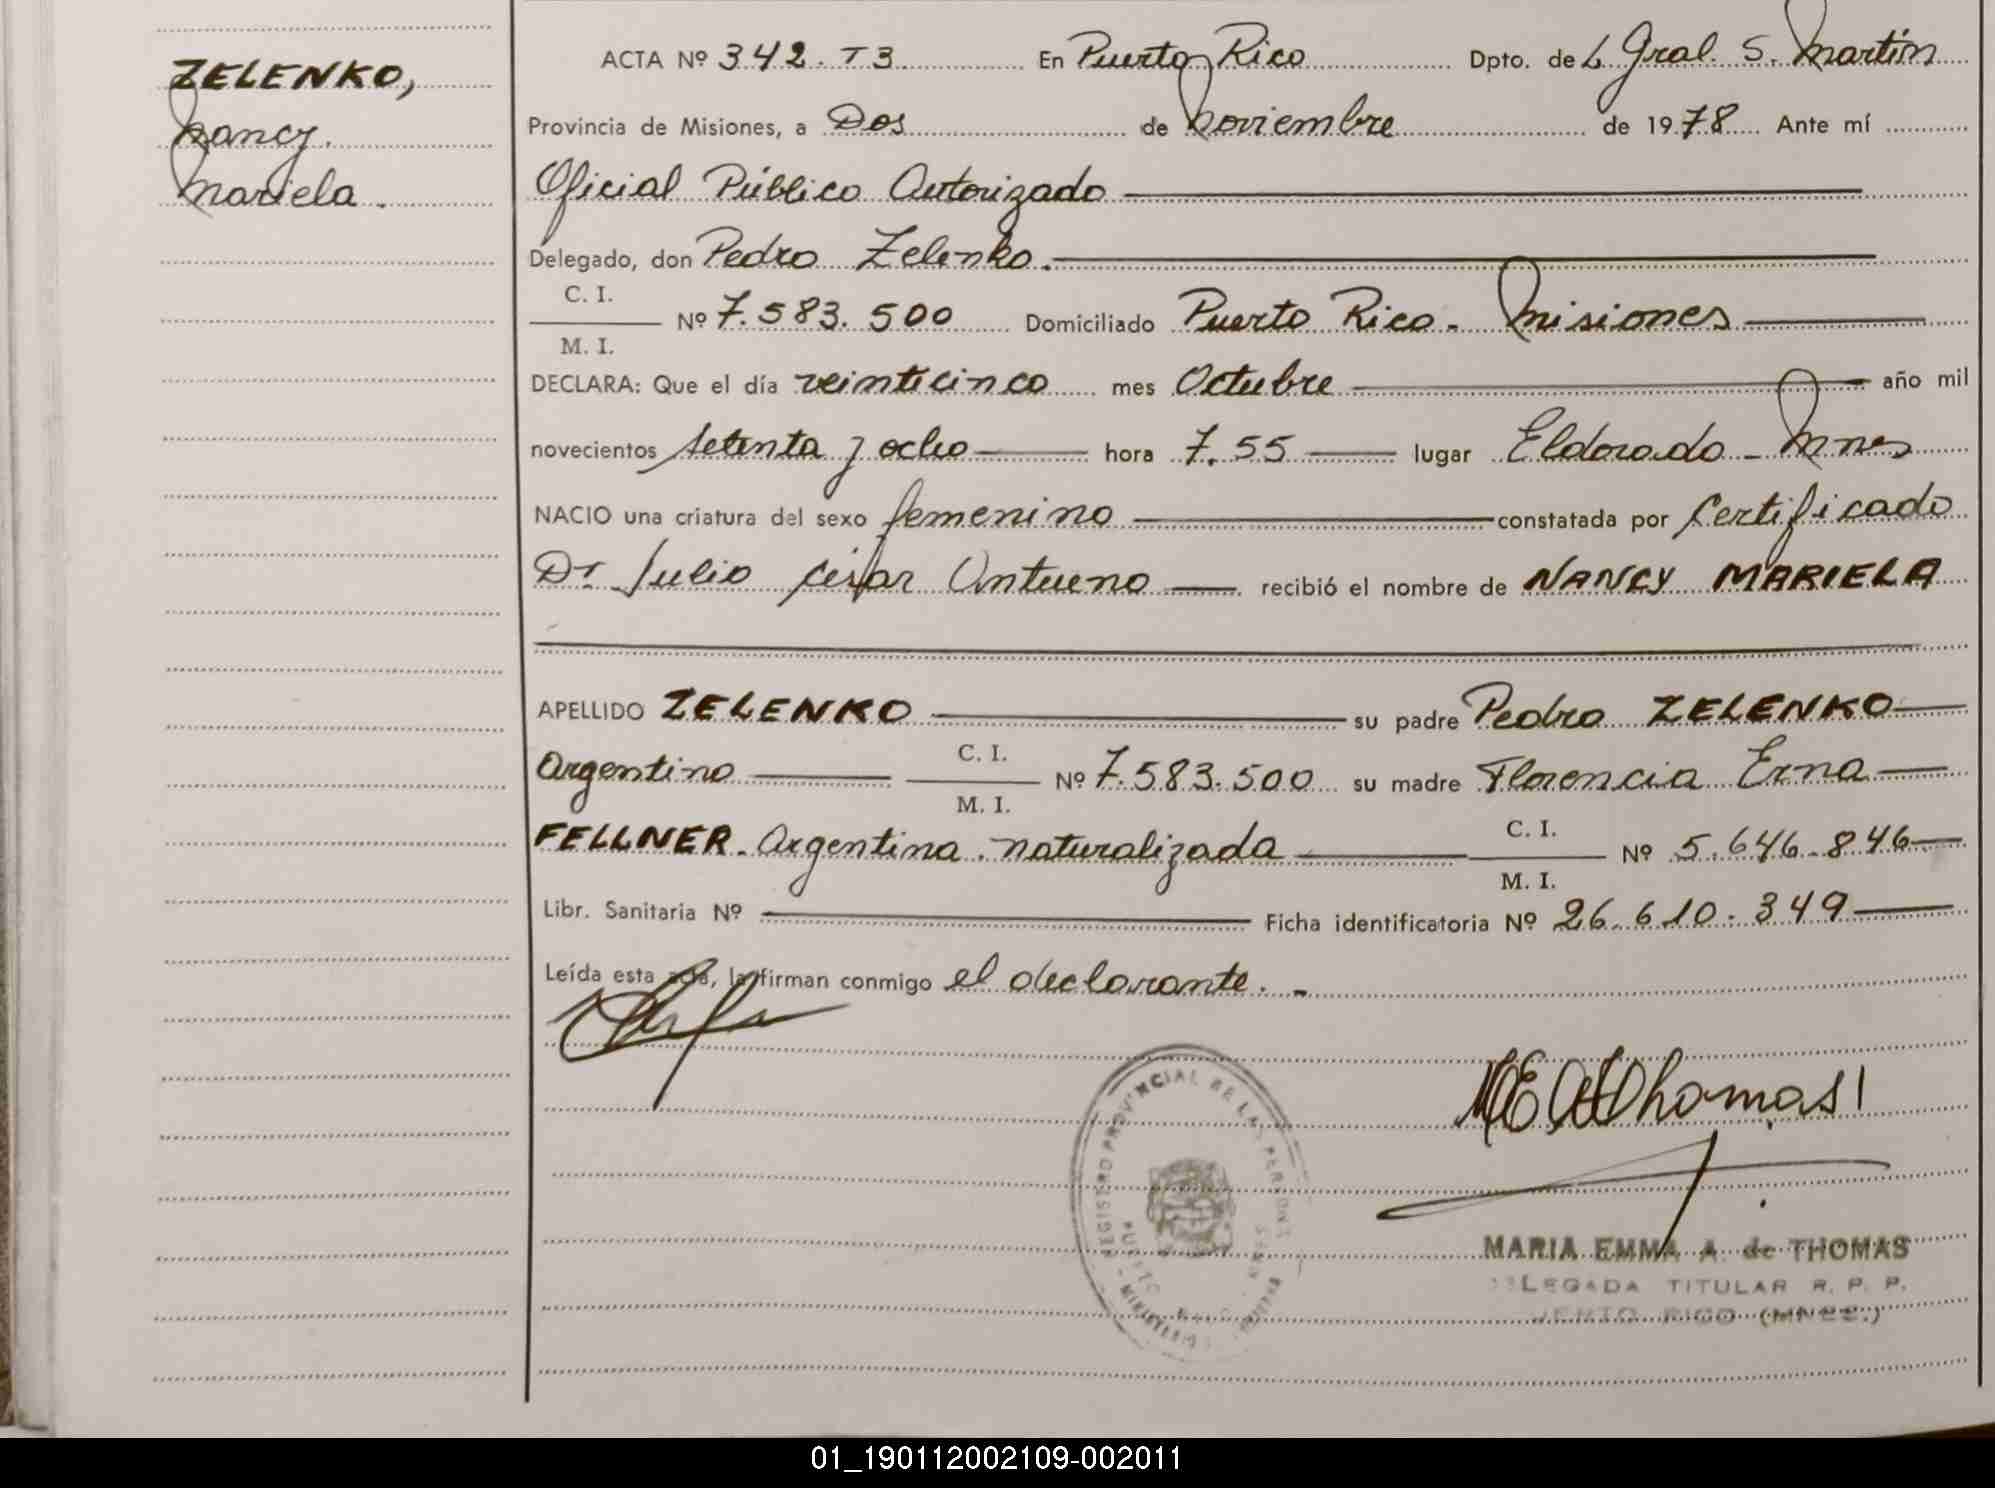 ZELENKO,
Nancy.
Mariela.
ACTA Nº 342. T3. En Puerto Rico Dpto. de L. Gral. S. Martín
Provincia de Misiones, a Dos de Noviembre de 1978 Ante mí
Oficial Público Autorizado
Delegado, don Pedro Zelenko.
C. I.
Nº 7.583.500 Domiciliado Puerto Rico. Misiones
M. I.
DECLARA: Que el día veinticinco mes Octubre año mil
novecientos setenta y ocho hora 7.55 lugar Eldorado - Mnes
NACIO una criatura del sexo femenino constatada por Certificado
Dr Julio César recibió el nombre de NANCY MARIELA
APELLIDO ZELENKO su padre Pedro ZELENKO
C. I.
Argentino Nº 7.583.500 su madre Florencia Erna
M. I.
C. I.
FELLNER. Argentina. naturalizada Nº 5.646.846
M. I.
Libr. Sanitaria Nº Ficha identificatoria Nº 26.610.349
Leída esta acta, la firman conmigo el declarante. -
REGISTRO PROVINCIAL DE LAS PERSONAS
MEAdThomas
MARIA EMMA A. de THOMAS
DELEGADA TITULAR R. P. P.
PUERTO RICO (MNES.)
01_190112002109-002011